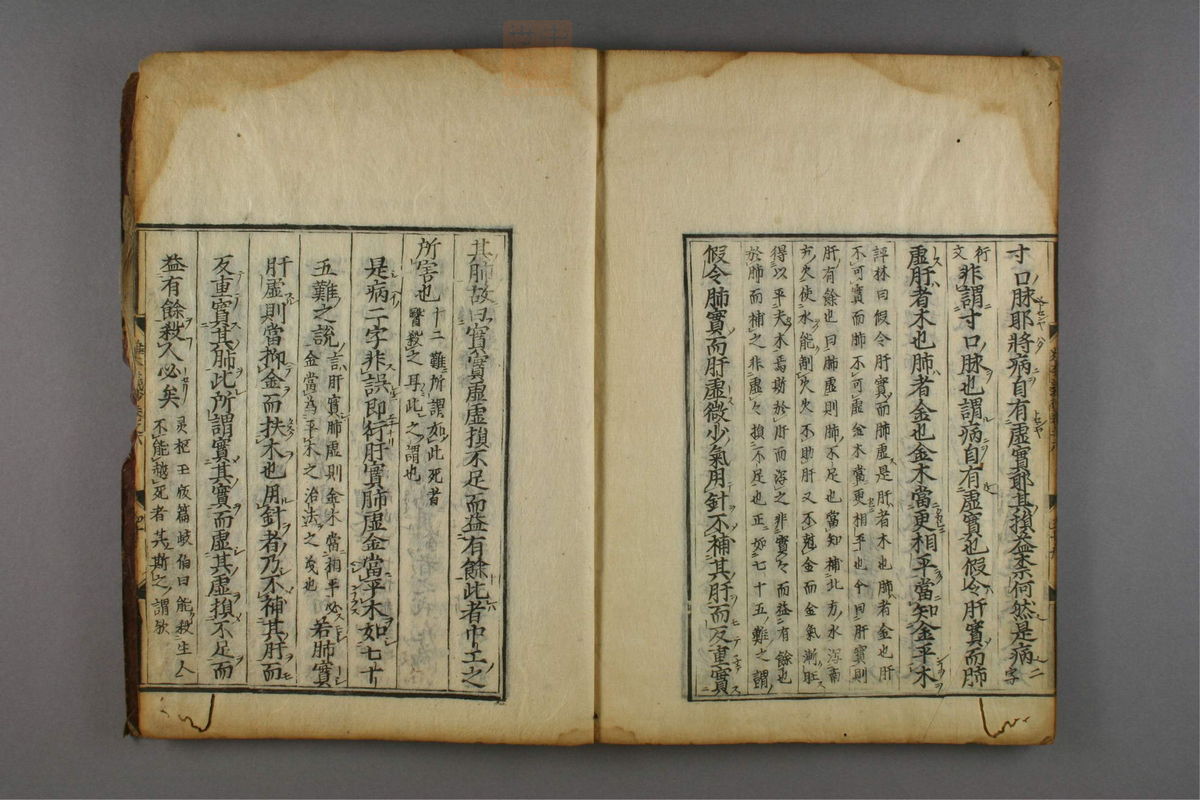 寸口脉耶將病自有虛實耶其損益柰何然是病二字
行文非謂寸口脉也謂病自有虛實也假令肝實而肺
虛肝者木也肺者金也金木當更相平當知金平木
評林曰假令肝實而肺虛是肝者木也肺者金也肝
不可實而肺不可虛金木當更相平也今曰肝實則
肝有餘也曰肺虛則肺不足也當知補北方水瀉南
方火使水能制火火不助肝又不尅金而金氣漸旺
得以平夫木焉斯於肝而瀉之非實々而益有餘也
於肺而補之非虛々損不足也正如七十五難之謂
假令肺實而肝虛微少氣用針不補其肝而反重實
其肺故曰實實虛虛損不足而益有餘此者中工之
所害也十二難所謂如此死者
醫殺之耳此之謂也
是病二字非誤即行肝實肺虛金當平木如七十
五難之說言肝實肺虛則金木當相平必
金當為平木之治法之義也若肺實
肝虛則當抑金而扶木也用針者乃不補其肝而
反重實其肺此所謂實其實而虛其虛損不足而
益有餘殺人必矣灵枢玉版篇岐伯曰能殺生人
不能越死者其斯之謂欤